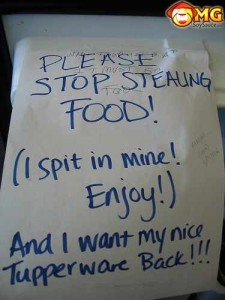 OMG
PLEASE
STOP STEALING
FOOD!
(I spit in mine!
Enjoy!)
And I want my nice
Tupperware Back!!!